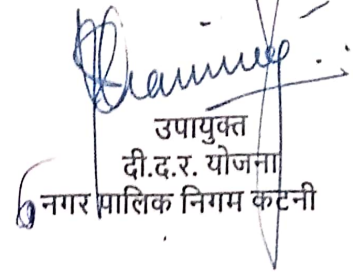 उपायुक्त
दी.द.र. योजना
नगर पालिक निगम कटनी